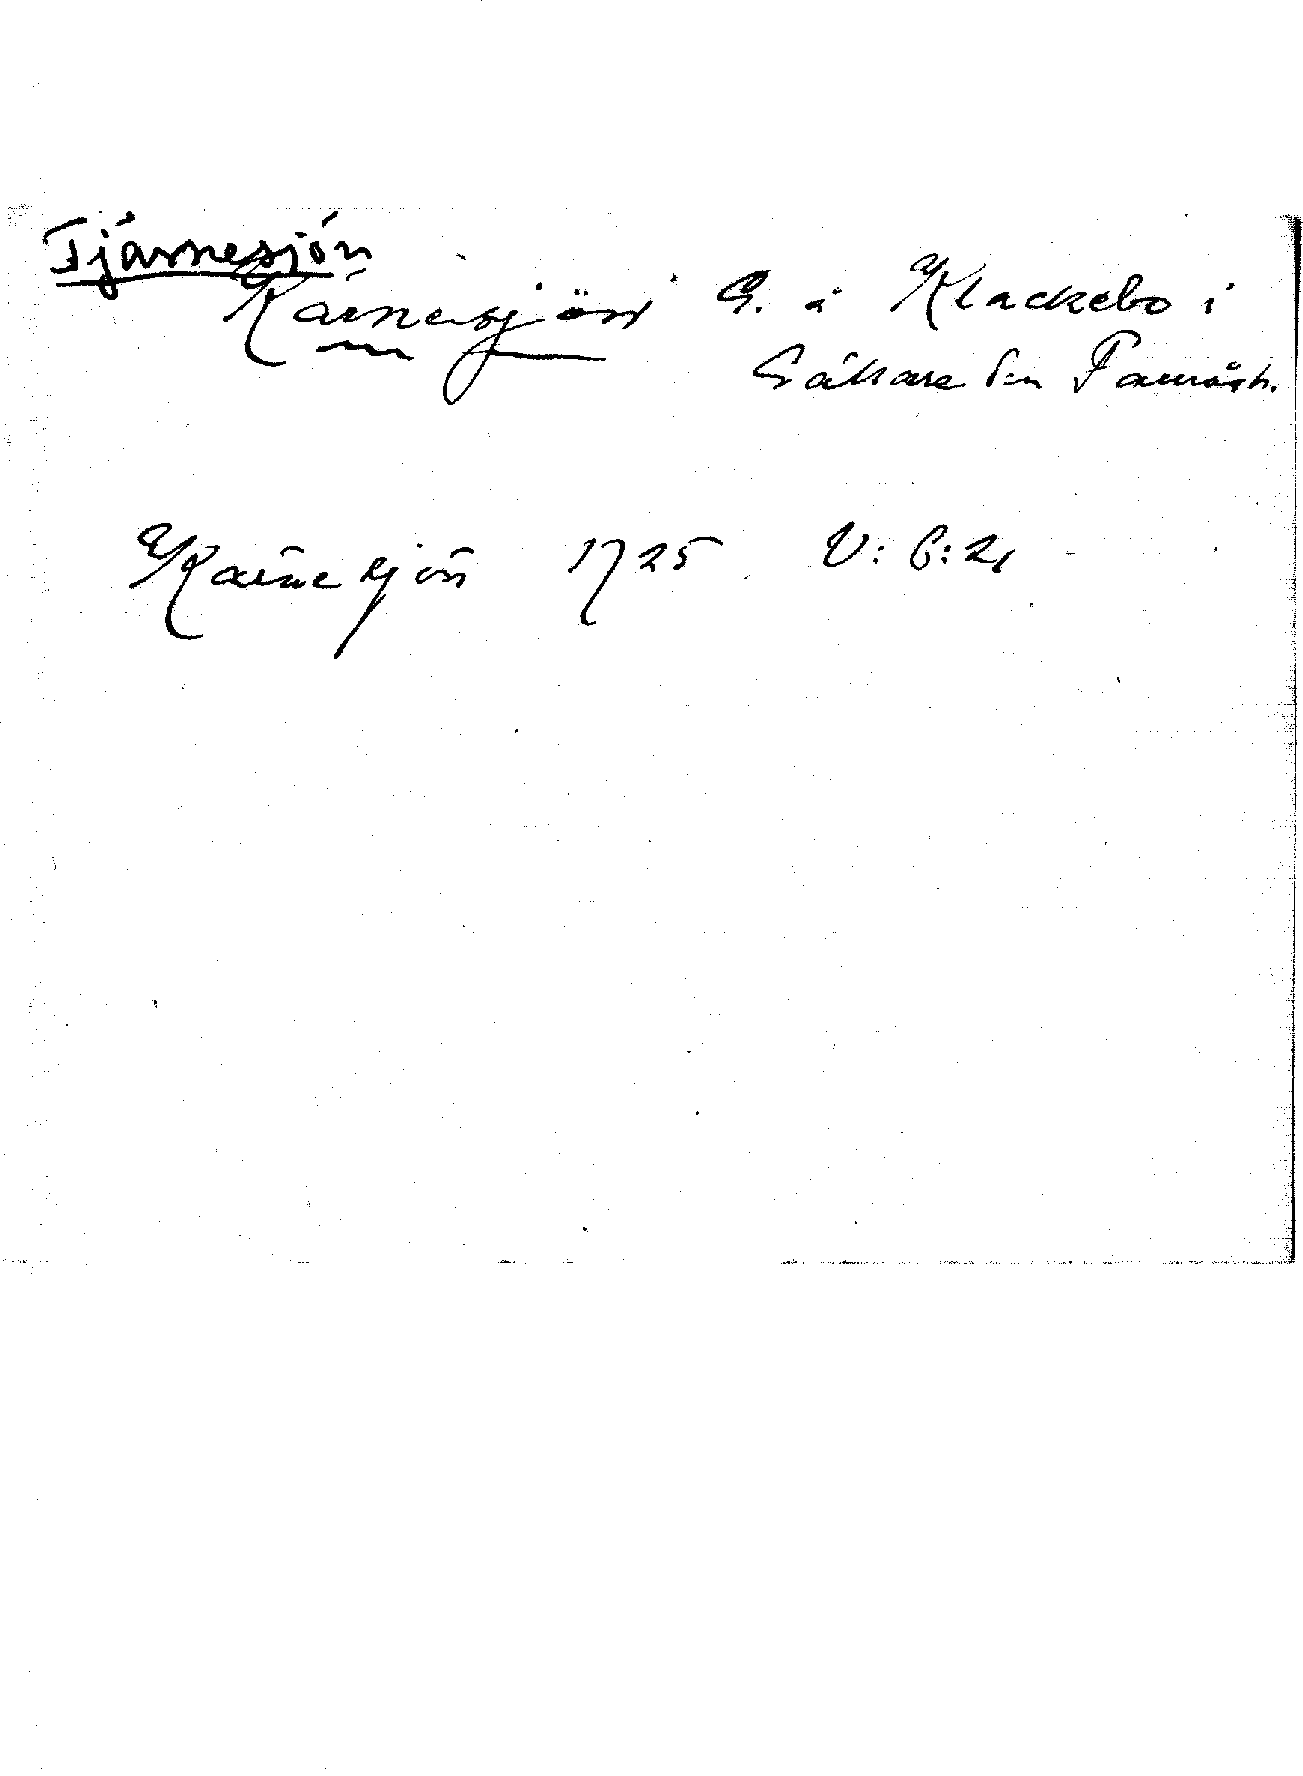 Tjärnesjön
Kärnesjön S. å Klackebo i
Gällared sn Faurås h.
Kärnesjön 1725 V: 6: 21